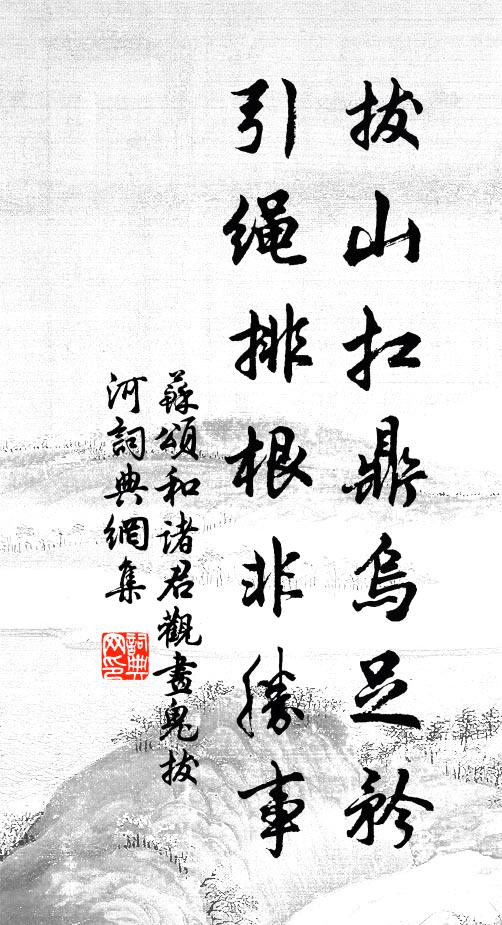 拔山扛鼎烏足矜
引繩排根非勝事
蘇頌和諸君觀畫鬼拔
河詞典網集
詞典
网印